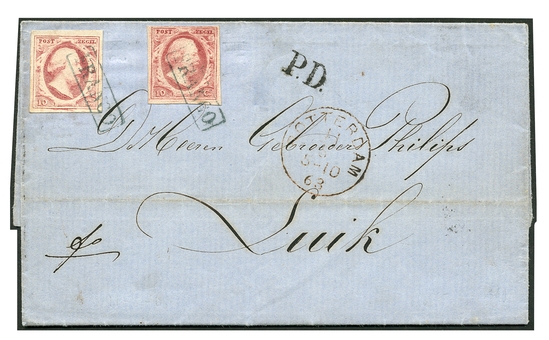 POST ZEGEL POST ZEGEL
10 C 10 C
FRANCO FRANCO
P.D.
ROTTERDAM
10
63
D'Heeren Gebroeders Philips
Luik